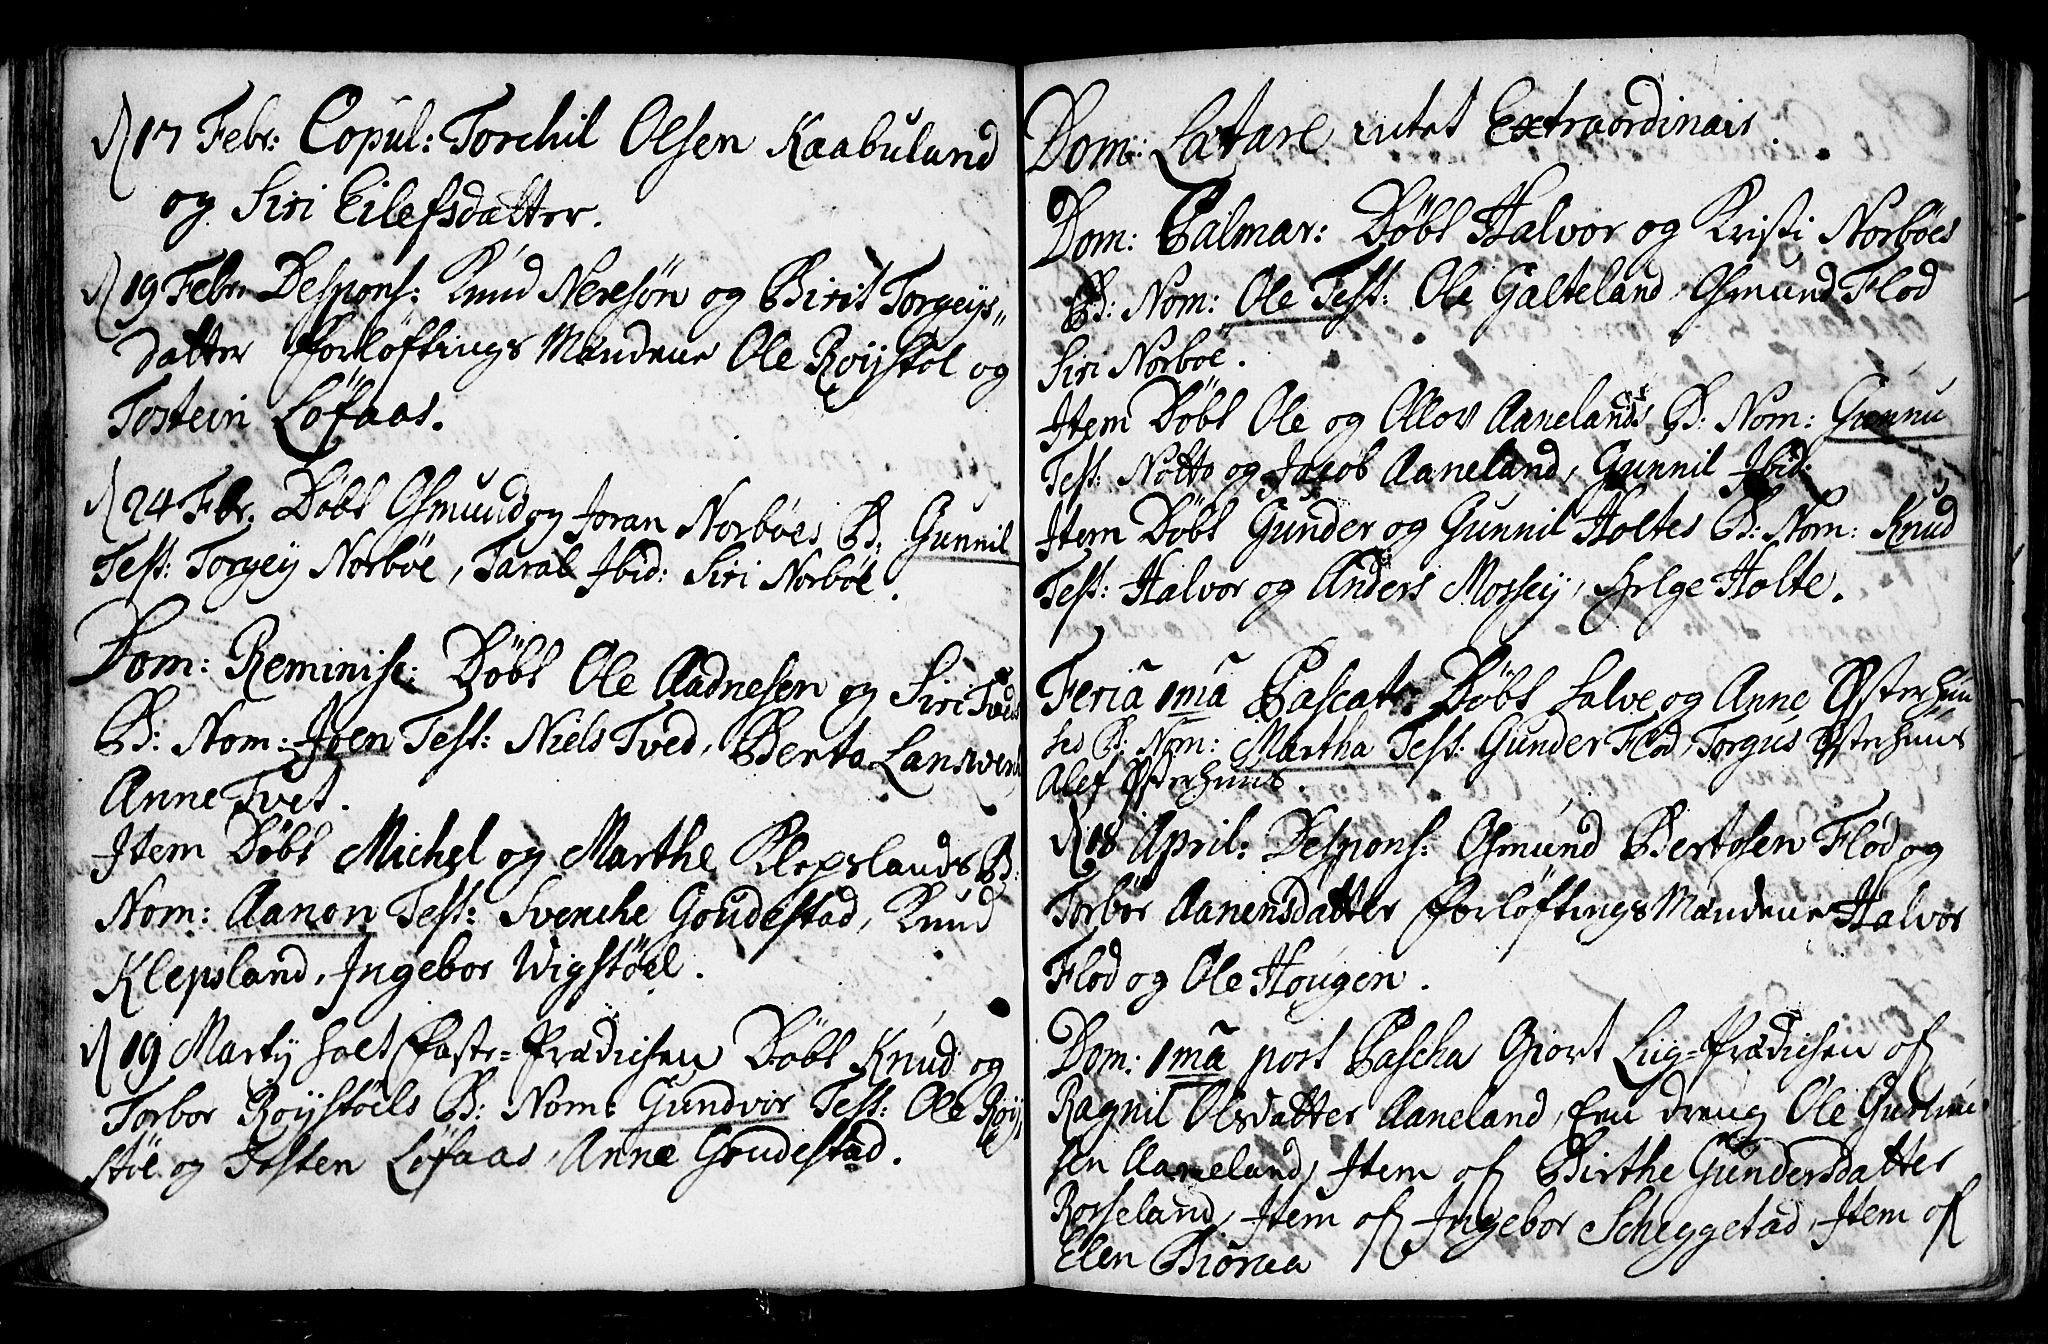 d 17 Febr: Copul: Torchil Olsen Kaabuland
og Siri Eilefsdatter.
d 19 Febr. Despons: Knud Nersøn og Birit Torgeÿs,,
datter Forløftings Mændene Ole Røÿstøl og
Tostein Løfaas.
d 24 Fbr. Døbt Osmund og Joran Norbøes B: Gunnil
Test: Torgeÿ Norbøe, Taral Ibid: Siri Norbøe.
Dom: Reminisc: Døbt Ole Aadnesen og Siri Tveds
B: Nom: Joen Test: Niels Tved, Berto Lansverd,
Anne Tvet.
Item Døbt Michel og Marthe Klepslands B:
Nom: Aanon Test: Svenche Goudestad, Knud
Klepsland, Ingebor Wigstøel.
d 19 Martÿ holt Faste-Prædichen Døbt Knud og
Torbor Roÿstøels B: Nom: Gundvor Test: Ole Røÿ,,
støl og Tosten Løfaas, Anne Goudestad.
Dom: Lætare intet Extraordinair.
Dom: Palmar: Døbt Halvor og Kristi Norbøes
B: Nom: Ole Test: Ole Galteland, Osmund Flod
Siri Norbøe.
Item Døbt Ole og Ollov Aanelands B: Nom: Gunnu
Test: Notto og Jacob Aaneland, Gunnil Ibid:
Item Døbt Gunder og Gunnil Holtes B: Nom: Knud
Test: Halvor og Anders Mosseÿ, Helge Holte.
Feria 1ma Pascat: Døbt Salve og Anne Østerhuu
ses B. Nom: Martha Test: Gunder Flod, Torgus Østerhuus
Alef Østerhuus.
d 18 April: Despons: Osmund Bertosen Flod og
Torbor Aanensdatter Forløftings Mændene Halvor
Flod og Ole Hougen.
Dom: 1ma post Pascha Giort Liig-Prædichen of
Ragnil Olsdatter Aaneland, En dreng Ole Guttor
sen Aaneland, Item of Birthe Gundersdatter
Rosseland, Item of Ingebor Scheggetad, Item of
Elen Biøraa